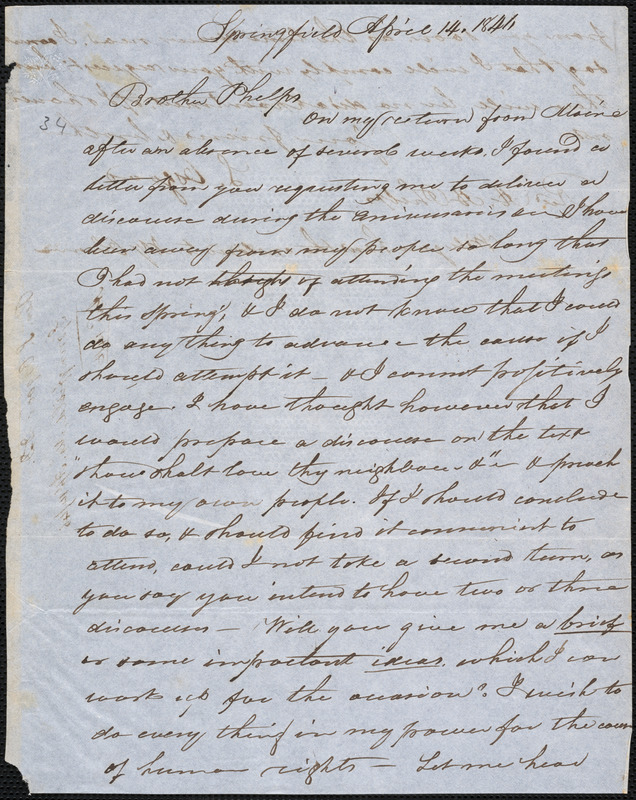 Springfield April 14. 1846
Brother Phelps
34
On my return from Maine
after an absence of several weeks, I found a
letter from you requesting me to deliver a
discourse during the anniversaries I have
been away from my people so long that
I had not thought of attending the meetings
this Spring, & I do not know that I could
do any thing to advance the cause if I
should attempt it – & I cannot positively
engage. I have thought however that I
would prepare a discourse on the text
"thou shalt love thy neighbour &" & preach
it to my own people. If I should conclude
to do so, & should find it convenient to
attend, could I not take a second turn, as
you say you intend to have two or three
discourses – Will you give me a brief
or some important ideas which I can
work up for the occasion? I wish to
do every thing in my power for the cause
of human rights – Let me hear